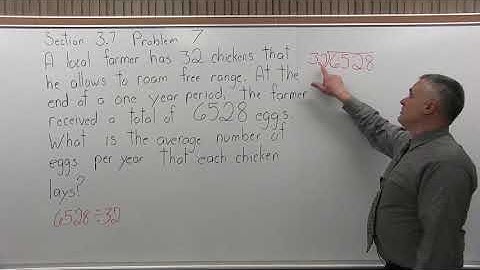 Section 3.7 Problem 7
A local farmer has 32 chickens that
he allows to roam free range. At the
end of a one year period, the farmer
received a total of 6528 eggs.
What is the average number of
eggs per year that each chicken
lays?
6528÷32
32 6528